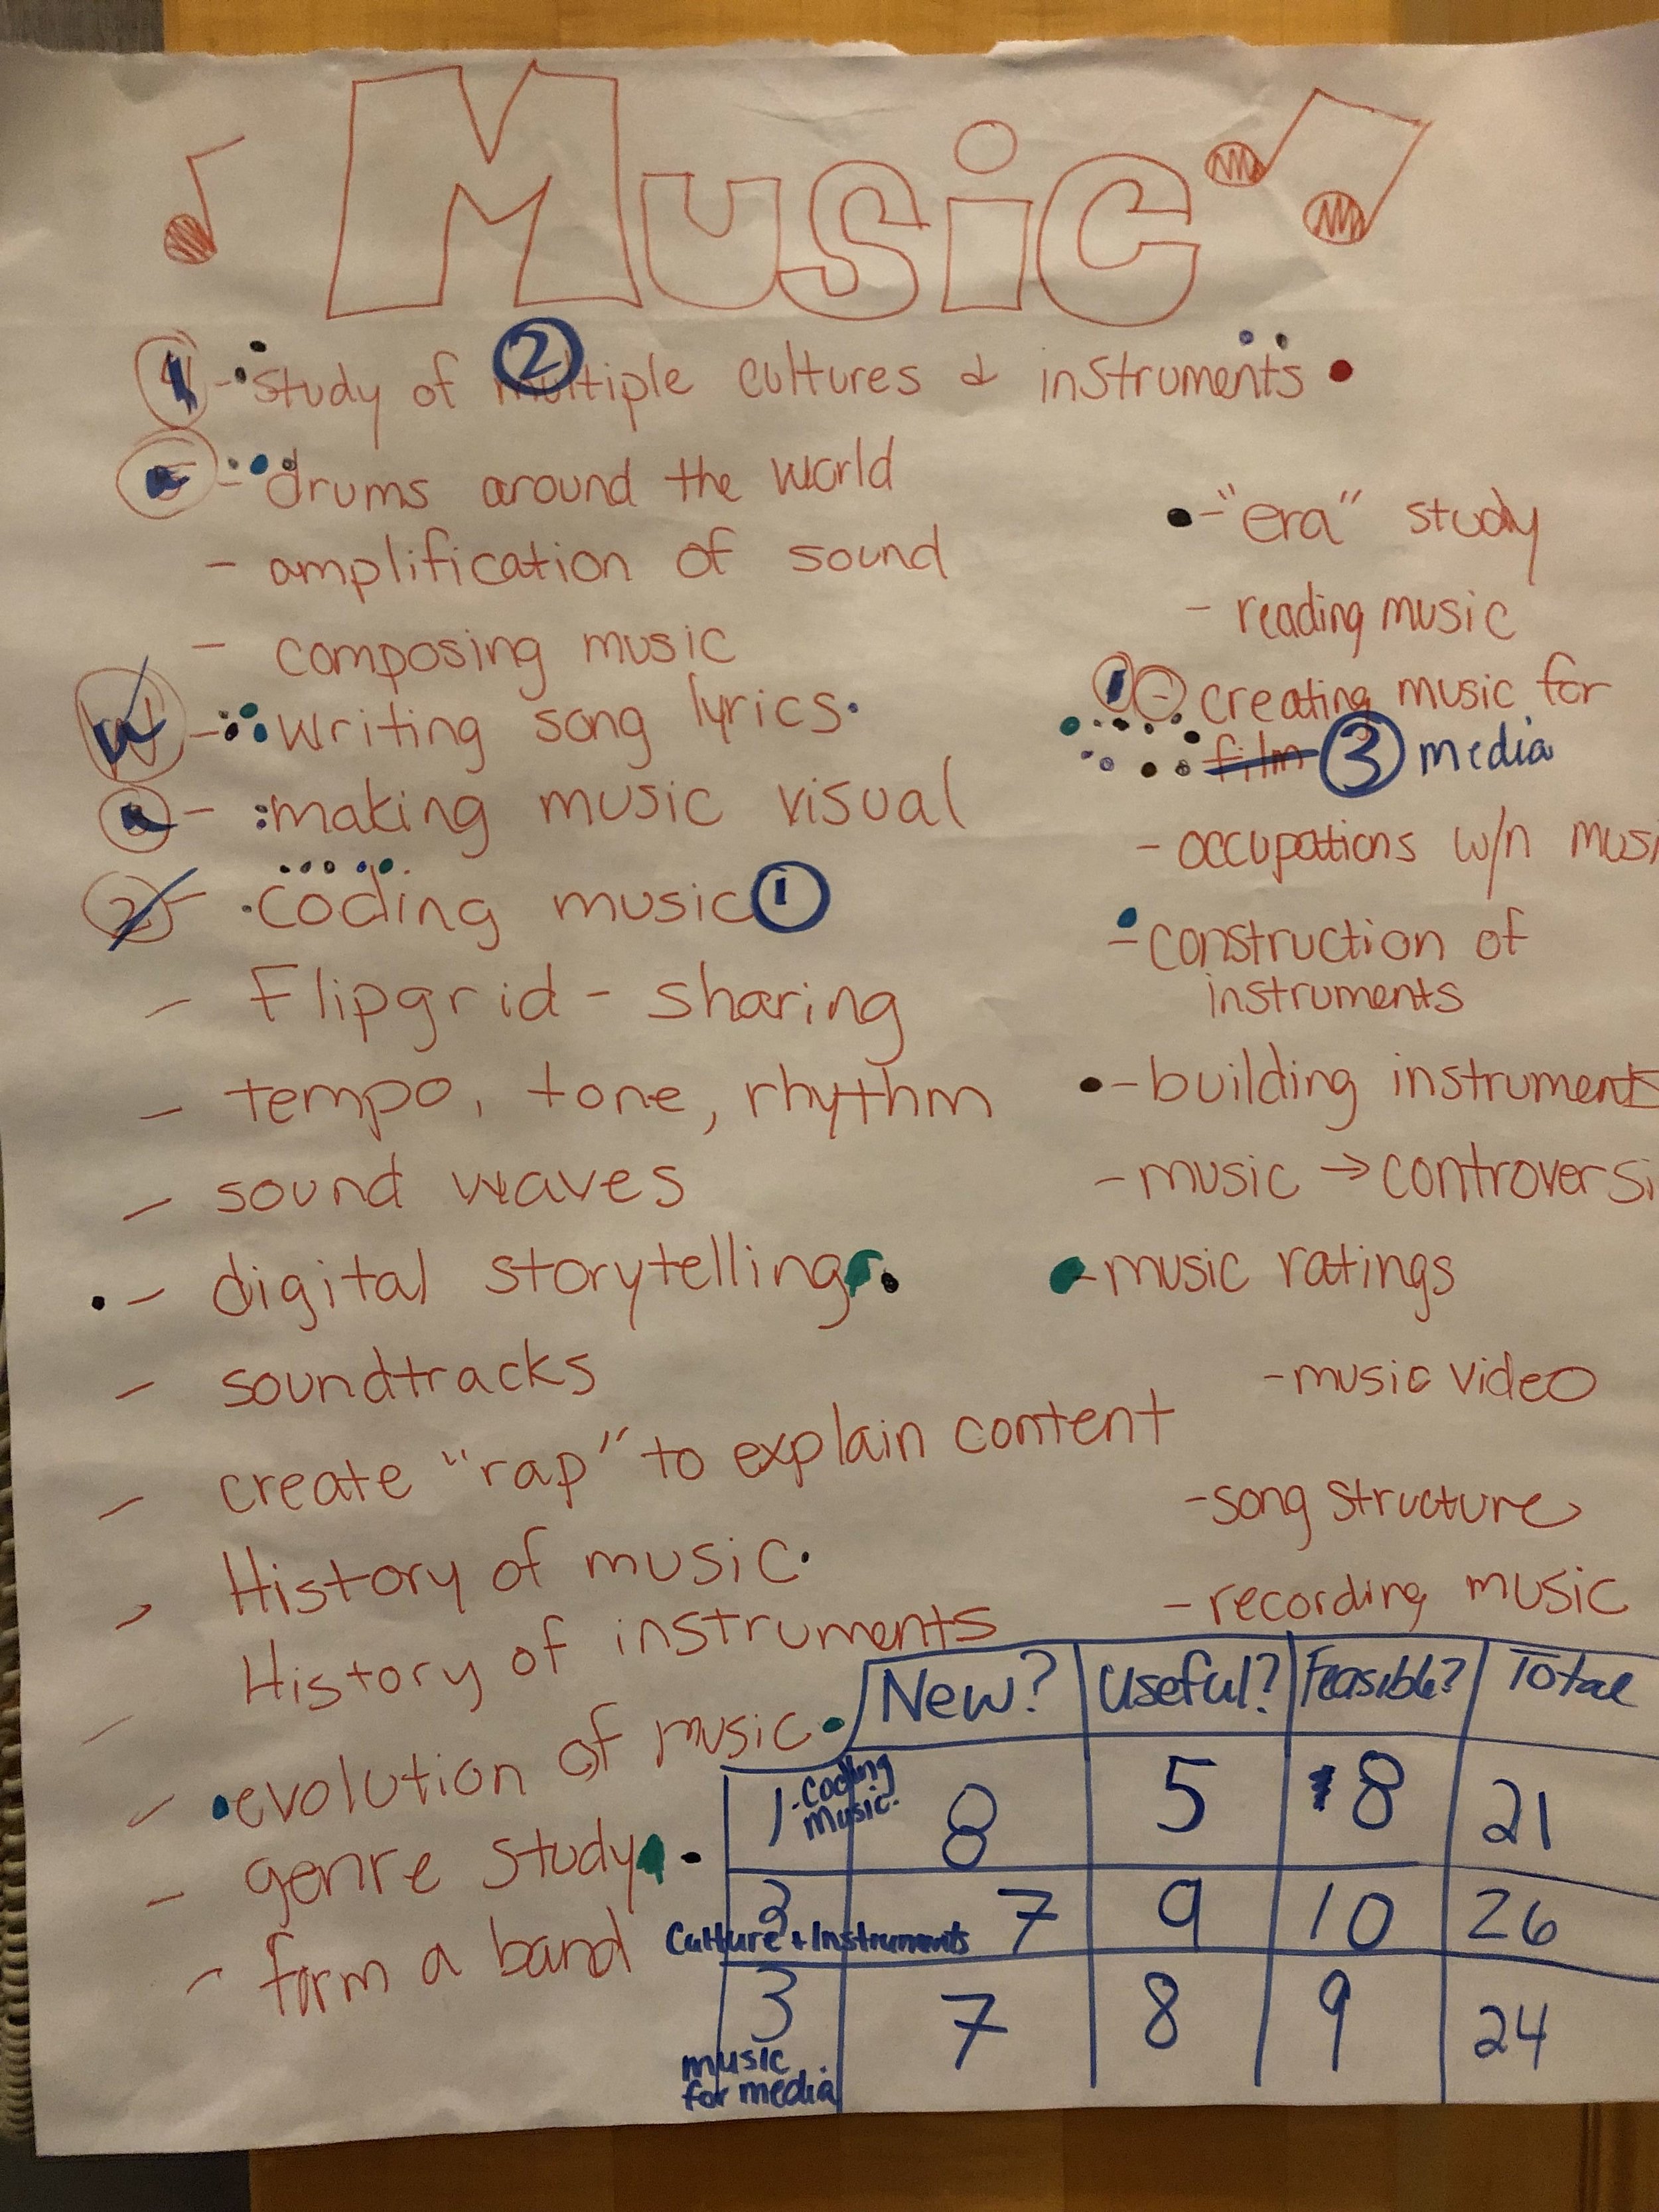 Music
- study of multiple cultures & instruments
2
- drums around the world
- amplification of sound
- composing music
- writing song lyrics
- making music visual
2 - coding music 1
- Flipgrid - sharing
- tempo, tone, rhythm
- sound waves
- digital storytelling
- soundtracks
- create "rap" to explain content
- History of music
- History of instruments
- evolution of music
- genre study
- form a band
- "era" study
- reading music
1 - creating music for
film 3 media
- occupations w/n
- construction of
instruments
- building instruments
- music →
- music ratings
- music video
- song structure
- recording music
New? Useful? Feasible? Total
1 - Coding Music 8 5 8 21
2 Culture + Instruments 7 9 10 26
3 music for media 7 8 9 24